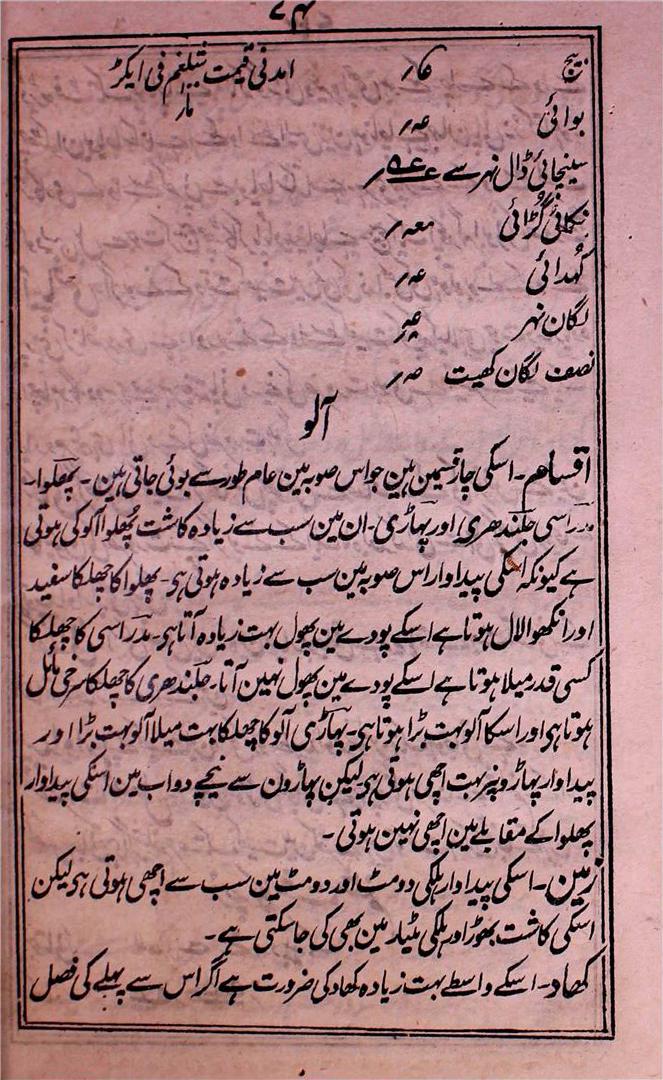 ۷۴
بیج عا؍ امدنی قیمت شلغم فی ایکڑ
بوائی عہ؍
سینچائی ڈال نہر سے
نکائی گڑائی معہ؍
کھدائی عہ؍
لگان نہر
نصف لگان کھیت صہ؍
آلو
اقسام۔ اسکی چار قسمین ہین جو اس صوبہ مین عام طور سے بوئی جاتی ہین۔ پھلوا۔
مدراسی جلندھری اور پہاڑی۔ ان مین سب سے زیادہ کاشت پھلوا آلو کی ہوتی
ہے کیونکہ اسکی پیداوار اس صوبہ مین سب سے زیادہ ہوتی ہی۔ پھلوا کا چھلکا سفید
اور انکھوا لال ہوتا ہے اسکے پودے مین پھول بہت زیادہ آتا ہی۔ مدراسی کا چھلکا
کسی قدر میلا ہوتا ہے اسکے پودے مین پھول نہین آتا۔ جلندھری کا چھلکا سرخی مائل
ہوتا ہی اور اسکا آلو بہت بڑا ہوتا ہی۔ پہاڑی آلو کا چھلکا بہت میلا آلو بہت بڑا اور
پیداوار پہاڑونپر بہت اچھی ہوتی ہی لیکن پہاڑون سے نیچے دواب مین اسکی پیداوار
پھلوا کے مقابلے مین اچھی نہین ہوتی۔
زمین۔ اسکی پیداوار ہلکی دومٹ اور دومٹ مین سب سے اچھی ہوتی ہی لیکن
اسکی کاشت بھوڑ اور ہلکی مٹیار مین بھی کی جاسکتی ہے۔
کھاد۔ اسکے واسطے بہت زیادہ کھاد کی ضرورت ہے اگر اس سے پہلے کی فصل